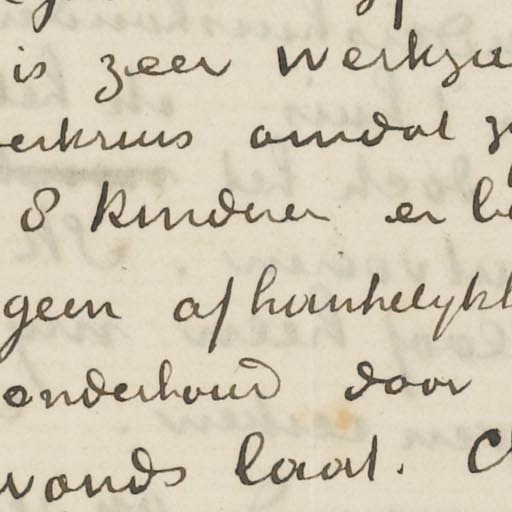 is zeer werkza
omdat
8 kinderen en
geen afhankelykh
onderhoud door
vonds laat.